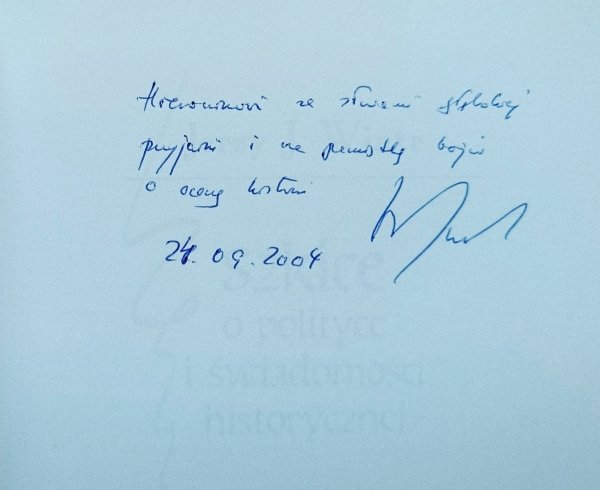 Hieronimowi ze słowami głębokiej
przyjaźni i na pamiątkę bojów
o ocenę historii
24.09.2004
Szkice
o polityce
i świadomości
historycznej